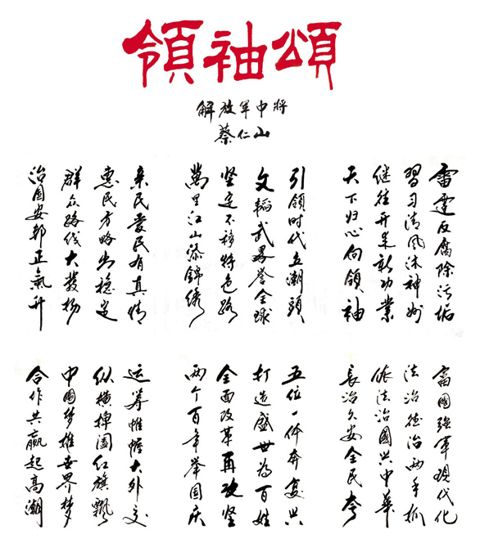 領袖頌
解放军中将
蔡仁山
雷霆反腐除污垢
習习清风沐神州
继往开来新功業
天下归心向领袖
引领时代立潮頭
文韬武畧誉全球
坚定不移特色路
萬里江山添錦绣
亲民爱民有真情
惠民方略出稳定
群众路线大發扬
治国安邦正氣升
富国強军现代化
法治德治两手抓
依法治國兴中華
長治久安全民夸
五位一体奔复兴
打造盛世为百姓
全面改革再攻坚
两个百年举国庆
运筹帷幄大外交
纵横捭阖红旗飘
中国梦推世界梦
合作共赢起高潮